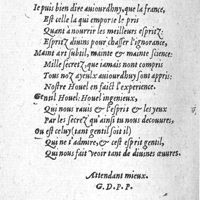 Ie puis bien dire auiourdhuy, que la france,
Est celle la qui emporte le pris
Quant à nourrir les meilleurs espritz:
Espritz diuins pour chasser l'ignorance,
Maint art subtil, mainte & mainte science:
Mille secretz, que iamais nont comprins
Tous noz ayeulx auiourdhuy sont appris:
Nostre Houel en faict l'experience.
Gentil Houel: Houel ingenieux,
Qui nous rauis & l'esprit & les yeux
Par les secretz qu'ainsi tu nous decouures,
Ou est celuy (tant gentil soit il)
Qui ne t'admire, & cest esprit gentil,
Qui nous fait veoir tant de diuines œuures.
Attendant mieux.
G. D. P. P.